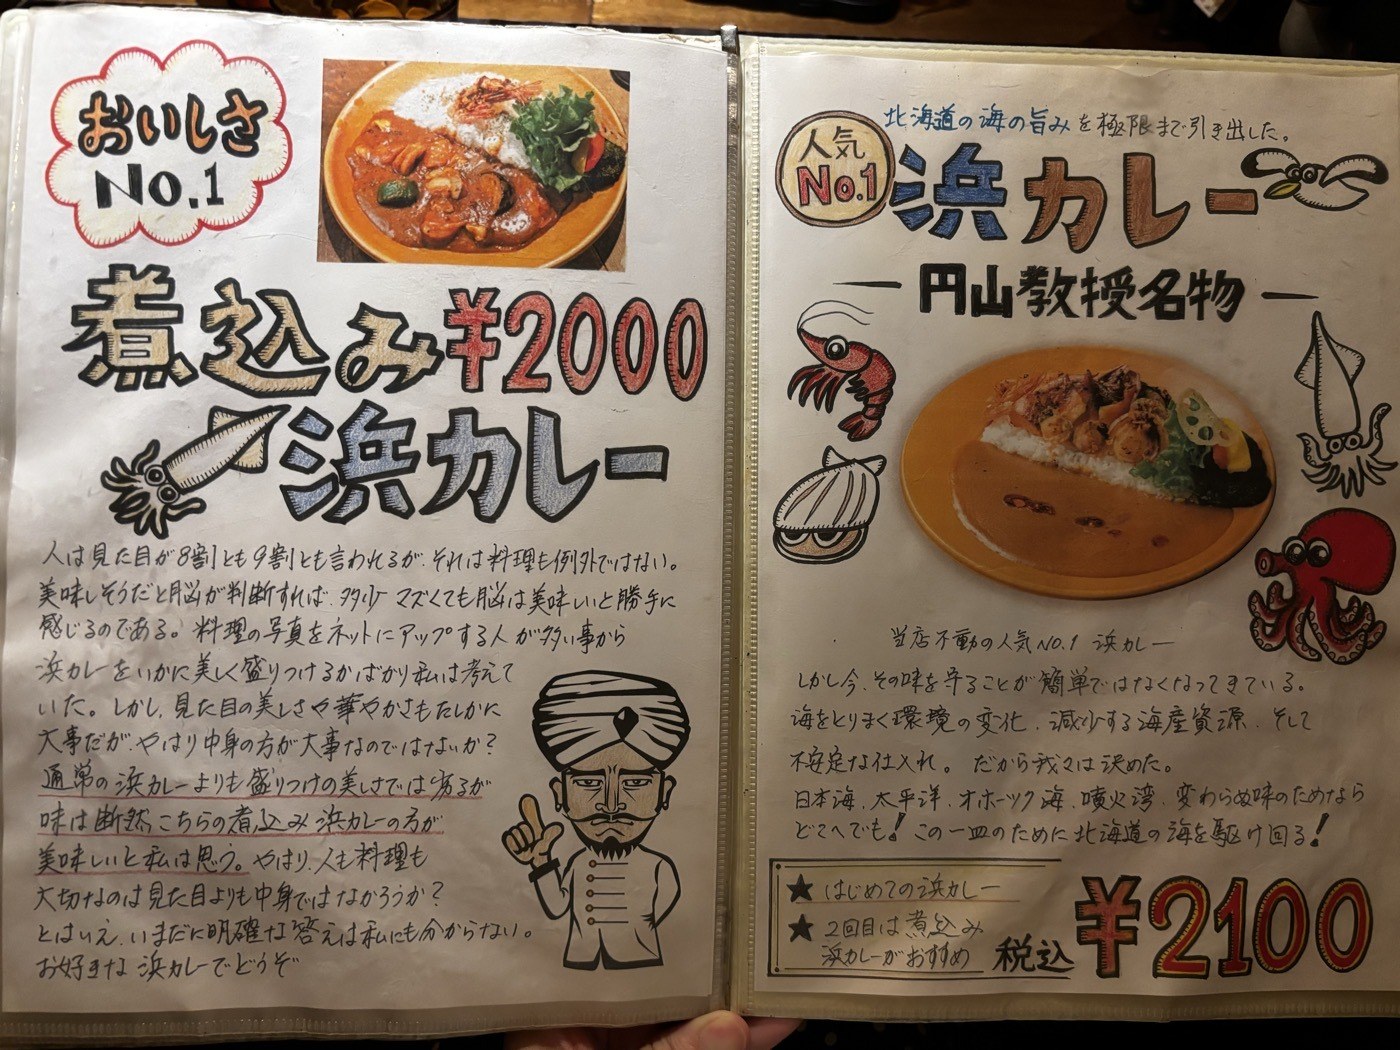 おいしさ
No.1
煮込み¥2000
浜カレー
人は見た目が8割とも9割とも言われるが、それは料理も例外ではない。
美味しそうだと脳が判断すれば、多少マズくても脳は美味しいと勝手に
感じるのである。料理の写真をネットにアップする人が多い事から
浜カレーをいかに美しく盛りつけるかばかり私は考えて
いた。しかし、見た目の美しさや華やかさもたしかに
大事だが、やはり中身の方が大事なのではないか？
通常の浜カレーよりも盛りつけの美しさでは劣るが
味は断然、こちらの煮込み浜カレーの方が
美味しいと私は思う。やはり、人も料理も
大切なのは見た目よりも中身ではなかろうか？
とはいえ、いまだに明確な答えは私にも分からない。
お好きな浜カレーでどうぞ
北海道の海の旨みを極限まで引き出した。
人気
No.1
浜カレー
円山教授名物
当店不動の人気NO.1 浜カレー
しかし今、その味を守ることが簡単ではなくなってきている。
海をとりまく環境の変化、減少する海産資源、そして
不安定な仕入れ。だから我々は決めた。
日本海、太平洋、オホーツク海、噴火湾、変わらぬ味のためなら
どこへでも！この一皿のために北海道の海を駆け回る！
★はじめての浜カレー
★2回目は煮込み
浜カレーがおすすめ
税込¥2100